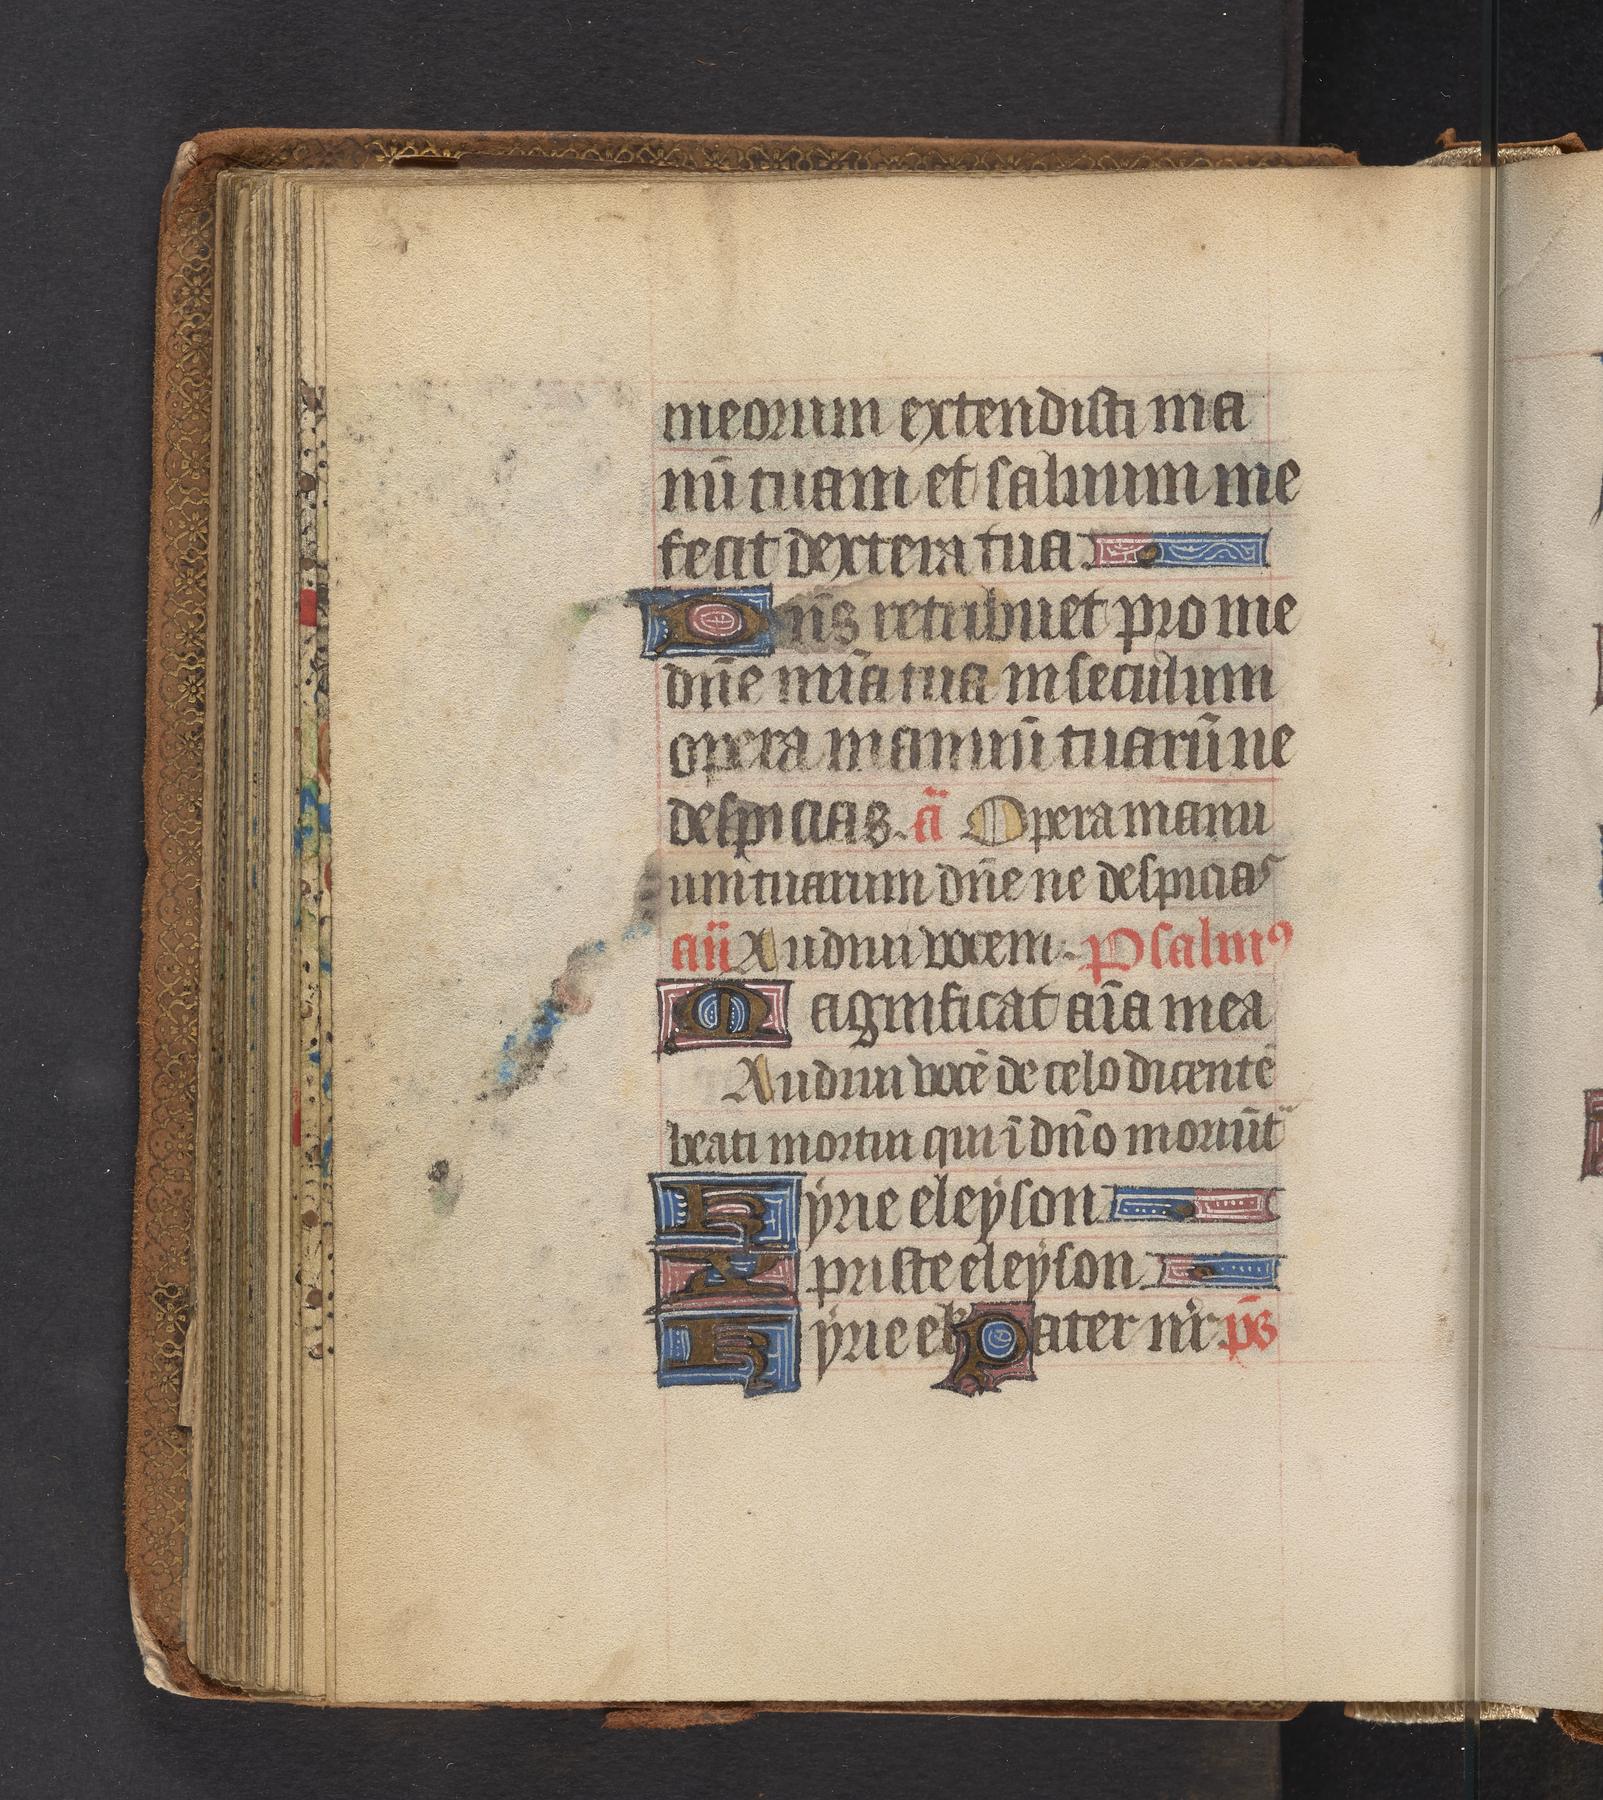 meorum extendisti ma
nū tuam et saluum me
fecit dextera tua.
Dn̄s retribuet pro me
dn̄e mīa tua in seculum
opera manuū tuarū ne
despicias. ā Opera manu
um tuarum dn̄e ne despicias
an̄ Audiui vocem. Psalmꝰ
Magnificat aīa mea
Audiui vocē de celo dicentē
beati mortui qui ī dn̄o moriūt᷑
Kyrie eleyson
Xpriste eleyson
Kyrie el̄ Pater nr̄. ps̄